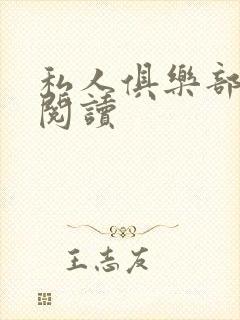 私人俱樂部
閱讀
王志友